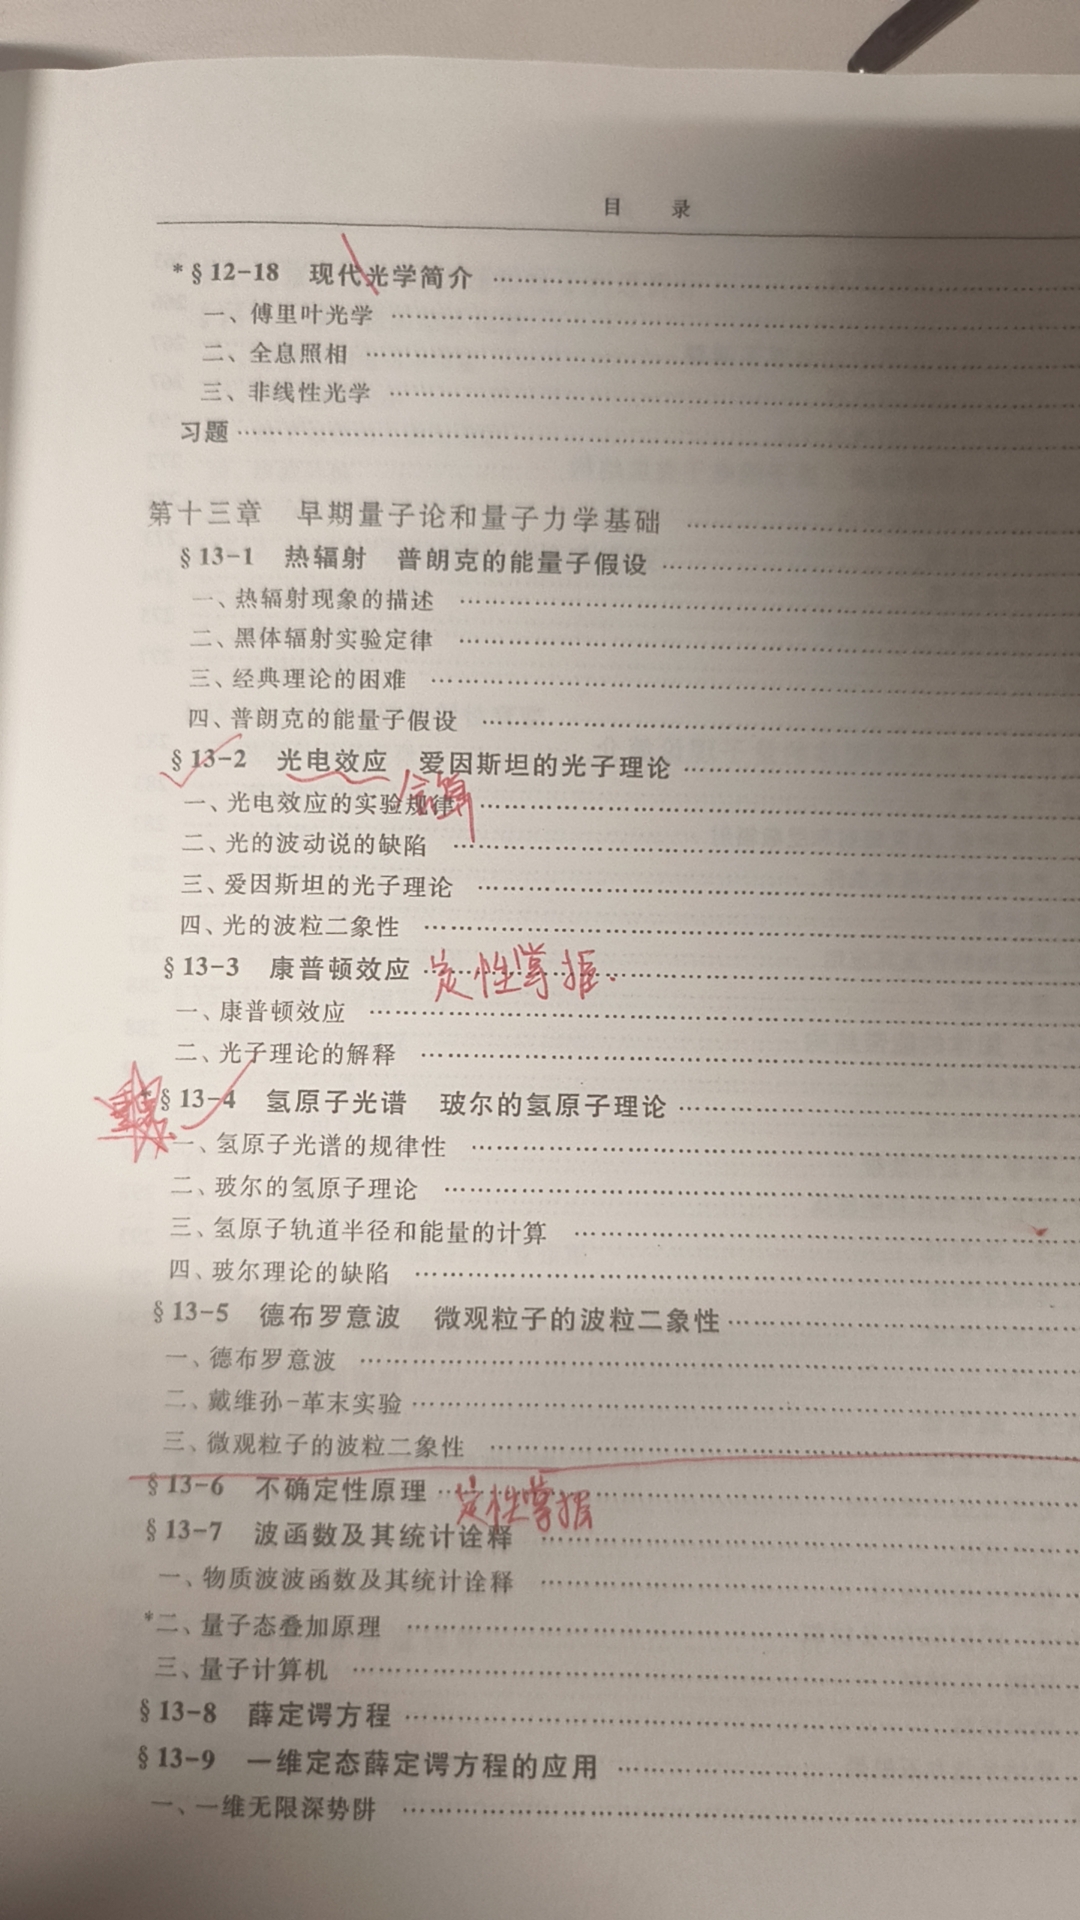 目 录
*§12-18 现代光学简介
一、傅里叶光学
二、全息照相
三、非线性光学
习题
第十三章 早期量子论和量子力学基础
§13-1 热辐射 普朗克的能量子假设
一、热辐射现象的描述
二、黑体辐射实验定律
三、经典理论的困难
四、普朗克的能量子假设
§13-2 光电效应 爱因斯坦的光子理论
一、光电效应的实验规律
二、光的波动说的缺陷
三、爱因斯坦的光子理论
四、光的波粒二象性
§13-3 康普顿效应 定性掌握.
一、康普顿效应
二、光子理论的解释
*§13-4 氢原子光谱 玻尔的氢原子理论
一、氢原子光谱的规律性
二、玻尔的氢原子理论
三、氢原子轨道半径和能量的计算
四、玻尔理论的缺陷
§13-5 德布罗意波 微观粒子的波粒二象性
一、德布罗意波
二、戴维孙-革末实验
三、微观粒子的波粒二象性
§13-6 不确定性原理 定性掌握
§13-7 波函数及其统计诠释
一、物质波波函数及其统计诠释
*二、量子态叠加原理
三、量子计算机
§13-8 薛定谔方程
§13-9 一维定态薛定谔方程的应用
一、一维无限深势阱